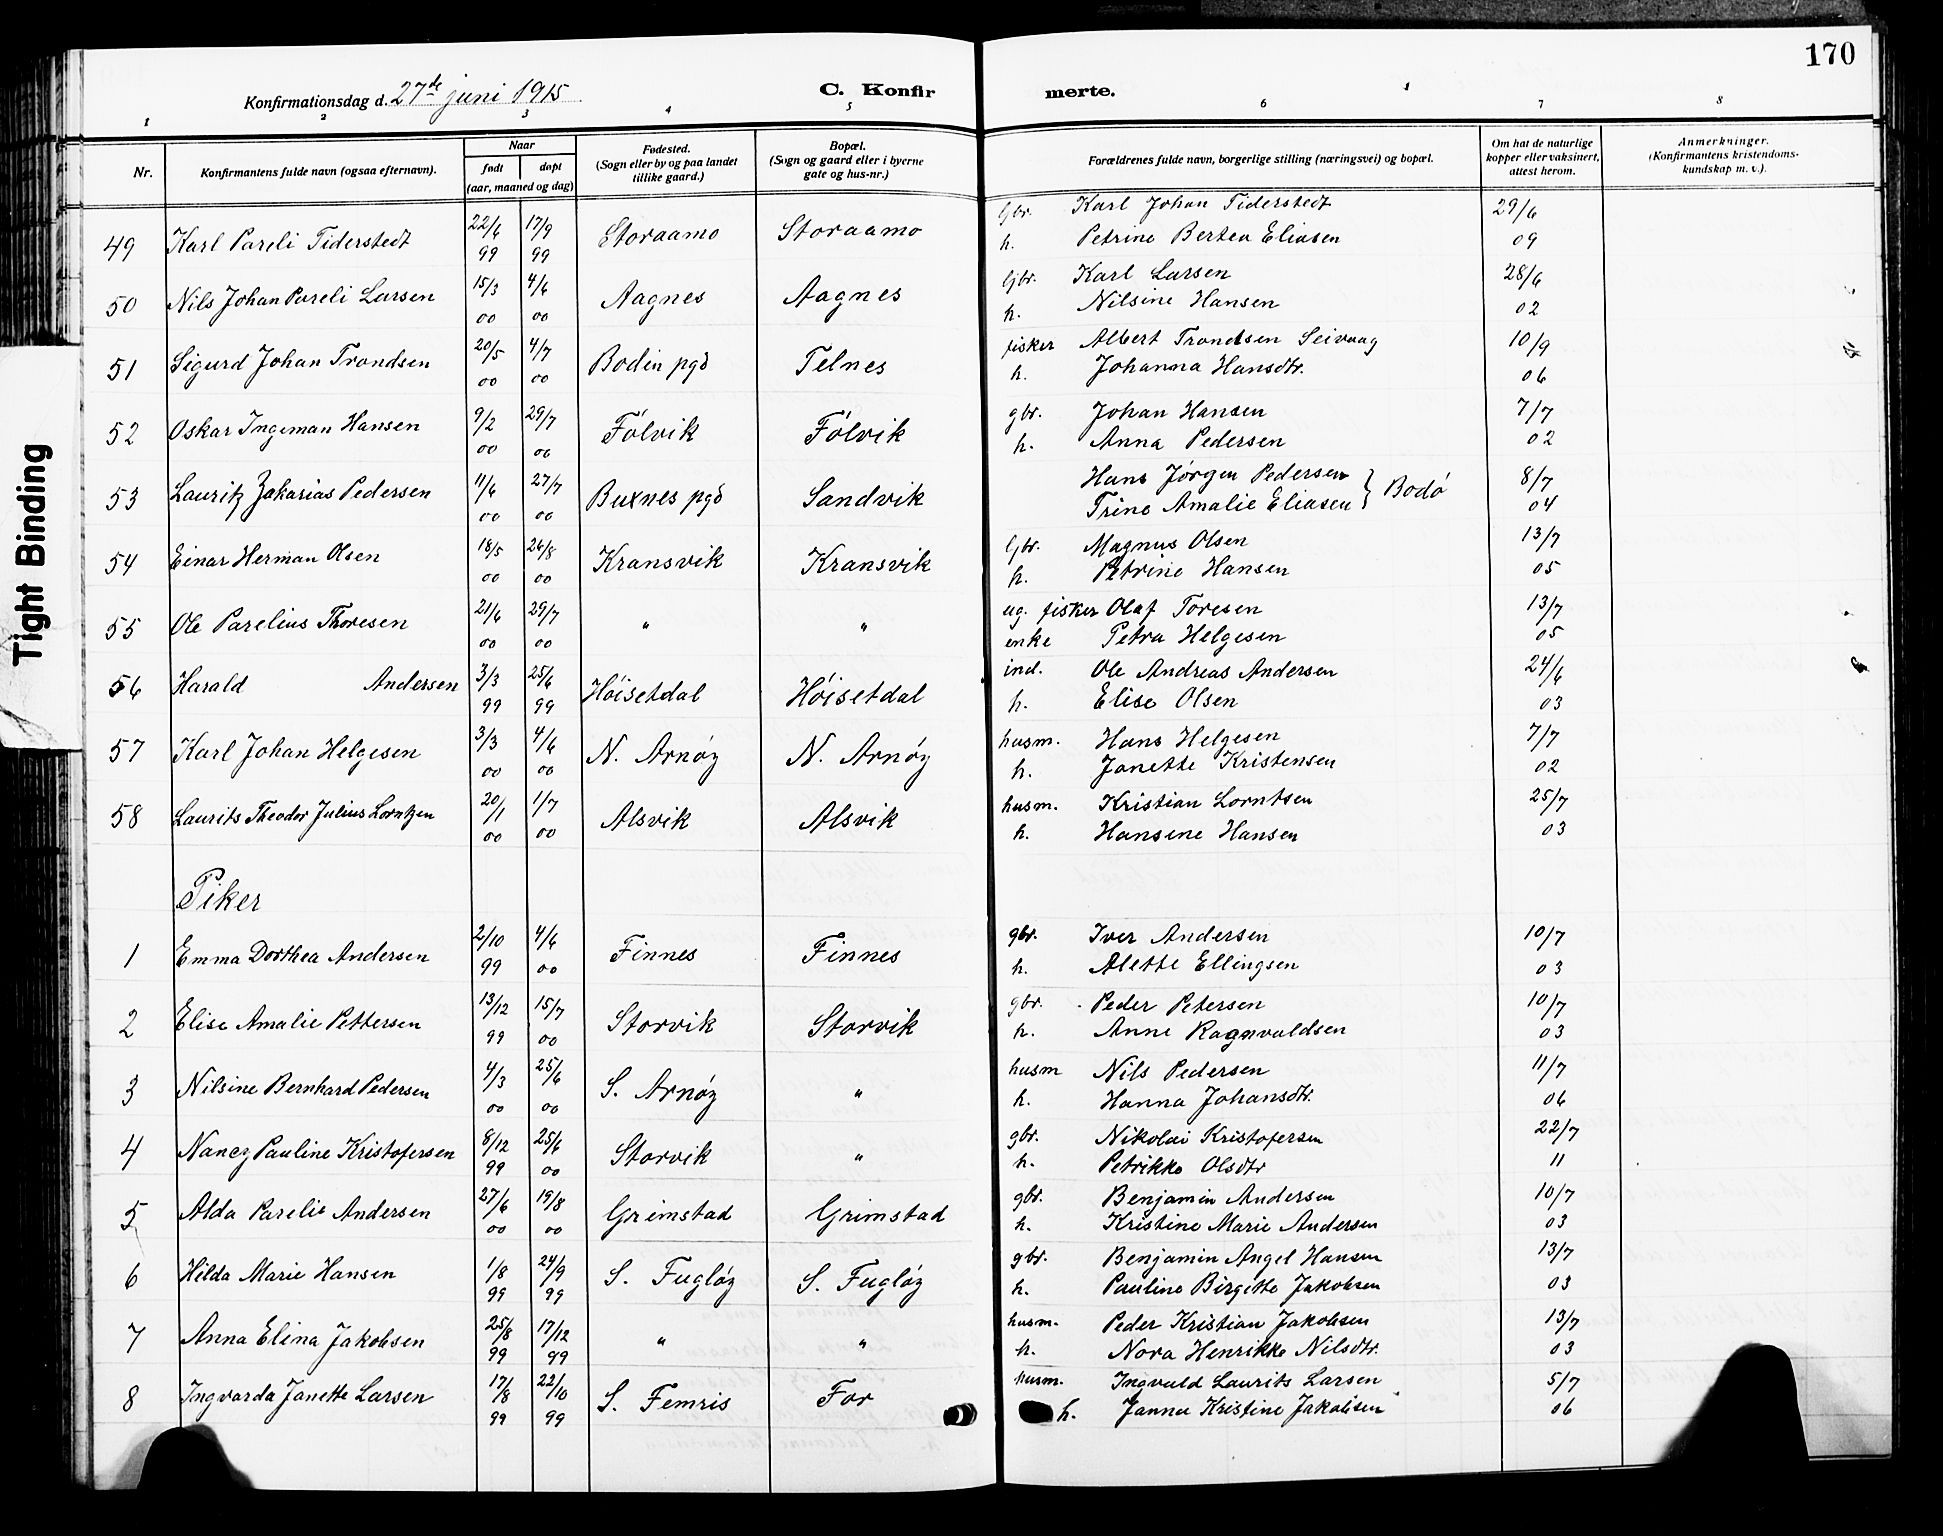 170
Konfirmationsdag d. 27de juni 1915
C. Konfir merte.
1 2 3 4 5 6 7 8
Nr. Konfirmantens fulde navn (ogsaa efternavn). Naar født døpt (aar, maaned og dag) Fødested. (Sogn eller by og paa landet tillike gaard.) Bopæl. (Sogn og gaard eller i byerne gate og hus-nr.) Forældrenes fulde navn, borgerlige stilling (næringsvei) og bopæl. Om hat de naturlige kopper eller vaksinert, attest herom. Anmerkninger. (Konfirmantens kristendoms-kundskap m. v.).
49 Karl Pareli Tiderstedt 22/6 99 17/9 99 Storaamo Storaamo Gbr. Karl Johan Tiderstedt 29/6
h. Petrine Bertea Eliasen 09
50 Nils Johan Pareli Larsen 15/3 00 4/6 00 Aagnes Aagnes Gbr. Karl Larsen 28/6
h. Nilsine Hansen 02
51 Sigurd Johan Trondsen 20/5 00 4/7 00 Bodin pgd Telnes fisker Albert Trondsen Seivaag 10/9
h. Johanna Hansdtr. 06
52 Oskar Ingeman Hansen 9/2 00 29/7 00 Følvik Følvik gbr. Johan Hansen 7/7
h. Anna Pedersen 02
53 Lauritz Zakarias Pedersen 11/6 00 27/7 00 Buxnes pgd Sandvik Hans Jørgen Pedersen 8/7
Trine Amalie Eliasen } Bodø 04
54 Einar Herman Olsen 18/5 00 26/8 00 Kransvik Kransvik Gbr. Magnus Olsen 13/7
h. Petrine Hansen 05
55 Ole Parelius Thoresen 21/6 00 29/7 00 " " ug. fisker Olaf Toresen 13/7
enke Petra Helgesen 05
56 Harald Andersen 3/3 99 25/6 99 Høisetdal Høisetdal ind. Ole Andreas Andersen 24/6
h. Elise Olsen 03
57 Karl Johan Helgesen 3/3 00 4/6 00 N. Arnøy N. Arnøy husm. Hans Helgesen 7/7
h. Janette Kristensen 02
58 Laurits Theodor Julius Lorntzen 20/1 00 1/7 00 Alsvik Alsvik husm. Kristian Lorntsen 25/7
h. Hansine Hansen 03
Piker
1 Emma Dorthea Andersen 2/10 99 4/6 00 Finnes Finnes gbr. Iver Andersen 10/7
h. Alette Ellingsen 03
2 Elise Amalie Pettersen 13/12 99 15/7 00 Storvik Storvik gbr. Peder Petersen 10/7
h. Anne Ragnvaldsen 03
3 Nilsine Bernhard Pedersen 4/3 00 25/6 00 S. Arnøy " husm Nils Pedersen 11/7
h. Hanna Johansdtr. 06
4 Nancy Pauline Kristofersen 8/12 99 25/6 00 Storvik " gbr. Nikolai Kristofersen 22/7
h. Petrikke Olsdtr 11
5 Alda Parelie Andersen 27/6 00 19/8 00 Grimstad Grimstad gbr. Benjamin Andersen 10/7
h. Kristine Marie Andersen 03
6 Hilda Marie Hansen 1/8 99 24/9 99 S. Fugløy S. Fugløy gbr. Benjamin Angel Hansen 13/7
h. Pauline Birgitte Jakobsen 03
7 Anna Elina Jakobsen 25/8 99 17/12 99 " " husm. Peder Kristian Jakobsen 13/7
h. Nora Henrikke Nilsdtr. 03
8 Ingvarda Janette Larsen 17/8 99 22/10 99 S. Femris For husm. Ingvald Laurits Larsen 5/7
h. Janna Kristine Jakobsen 06
Tight Binding